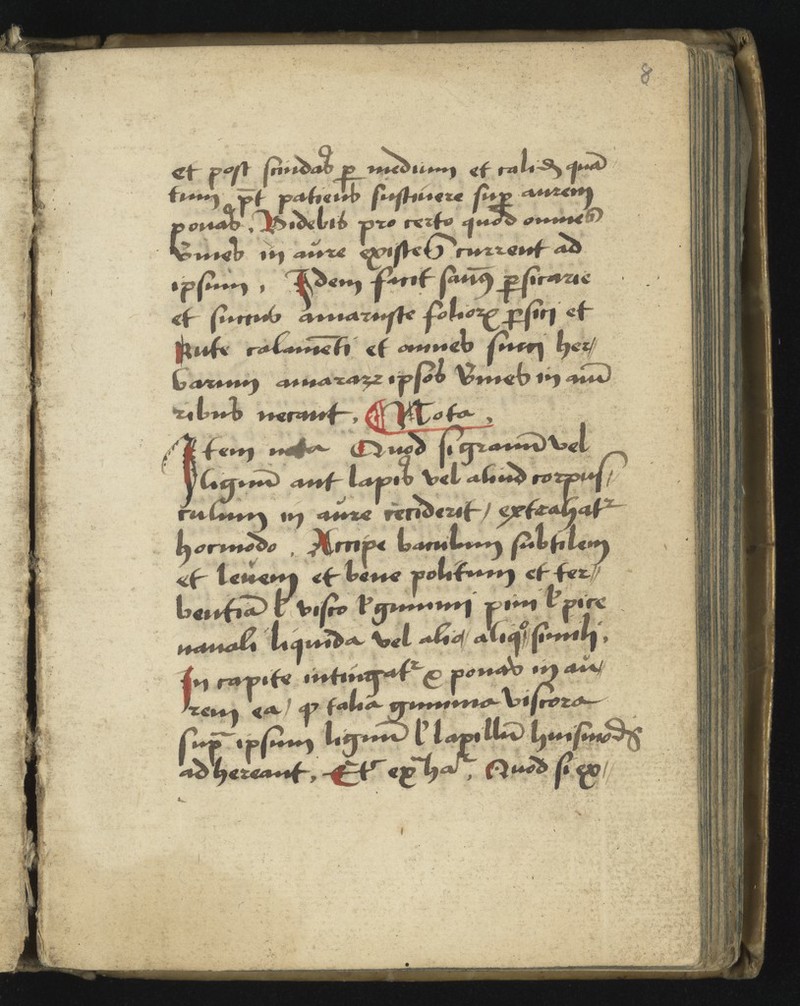 8
et post scindas p̱ medium et calid̄ quā
tum p̄t patiens sustinere sup̱ aurem
ponas. Videbis pro certo quod omnes
v̄mes in aure existēs current ad
ipsum, Idem facit p̱sicarie
et succus amaruste folioꝝ p̱sici et
Rute calamēti et omnes succi her/
barum amararꝝ ipsos v̄mes in auū
ribus necant, Nota,
Item nota Quod si granū vel
lignū aut lapis vel aliud corpus/
culum in aure ceciderit/ extrahatr
hocmodo, Accipe baculum subtilem
et levem et bene politum et ter/
bentiā l̄ visco l̄ gummi pini l̄ pice
navali liquida vel alio/ aliqo simili,
In capite intingatr et ponas in au/
rem ea/ ꝙ talia gumma viscora
sup̄ ipsum lignū l̄ lapillū huismodj
adhereant, Etr ex̄har, Quod si ex/